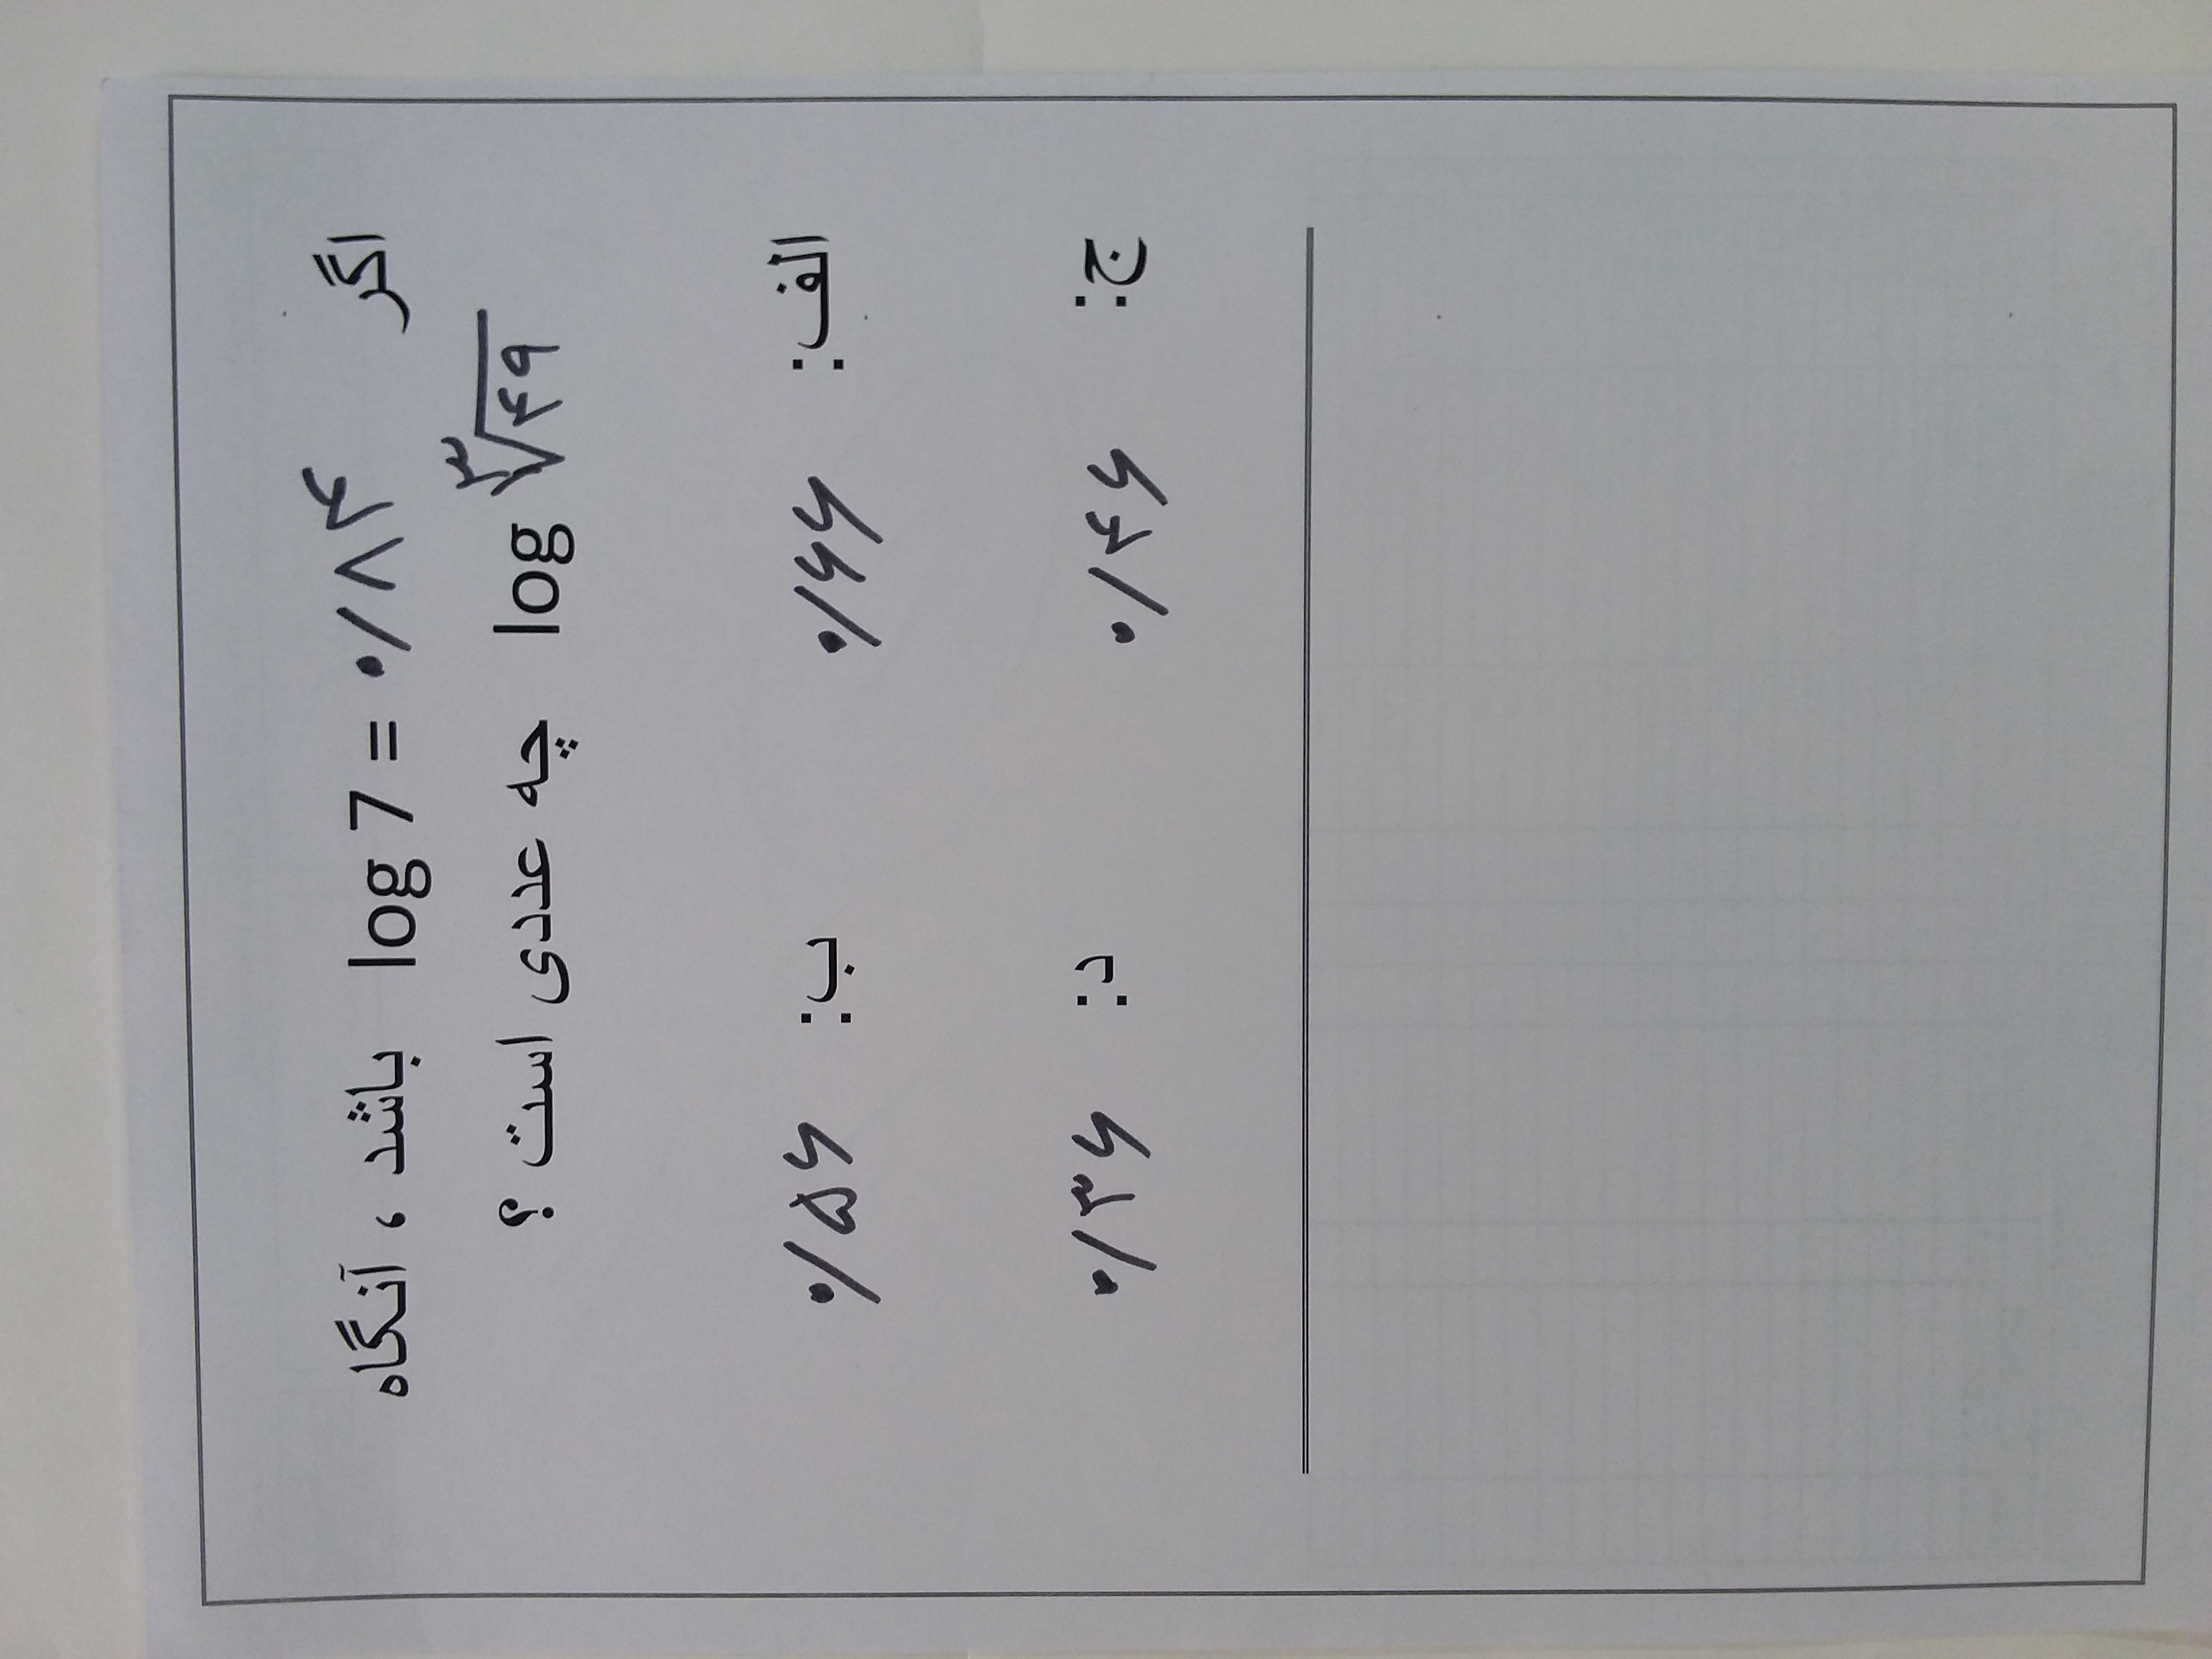 اگر log 7 = ۰/۸۴ باشد ، آنگاه
log ∛۴۹ چه عددی است ؟
الف: ۰/۶۶ ب: ۰/۵۶
ج: ۰/۴۶ د: ۰/۳۶